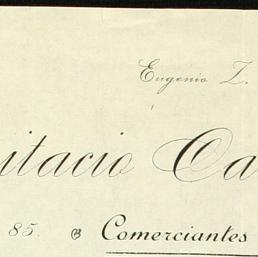 Eugenio Z.
itacio Ca
85. Comerciantes